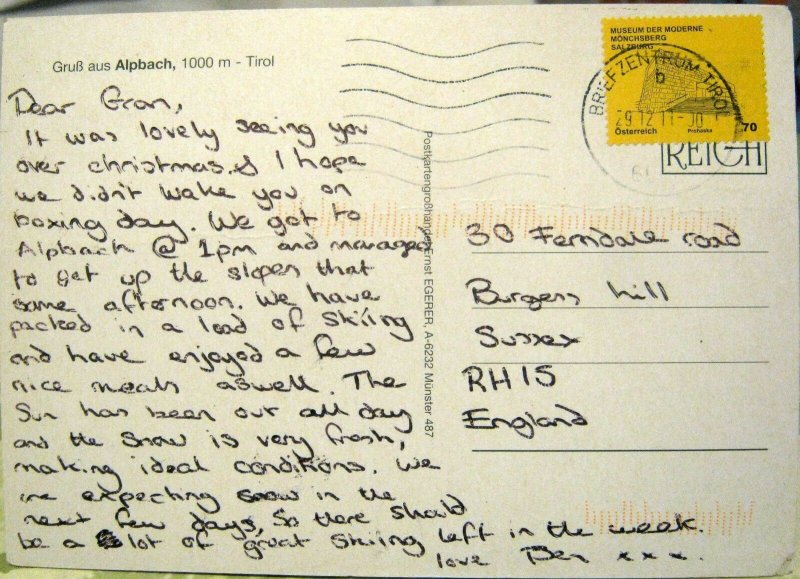 Gruß aus Alpbach, 1000 m - Tirol
Dear Gran,
It was lovely seeing you
over christmas. I hope
we didn't wake you on
boxing day. We got to
Alpbach @ 1pm and managed
to get up the slopes that
same afternoon. We have
packed in a load of skiing
and have enjoyed a few
nice meals aswell. The
Sun has been out all day
and the snow is very fresh,
making ideal conditions. We
are expecting snow in the
next few days, so there should
be a lot of great skiing left in the week
love Ben x x x.
Postkartengroßhandel Ernst EGERER, A-6232 Münster 487
MUSEUM DER MODERNE
MÖNCHSBERG
SALZBURG
Österreich
Prohaska
70
BRIEFZENTRUM TIROL
b
29.12.11-
REICH
30 Ferndale road
Burgess hill
Sussex
RH15
England